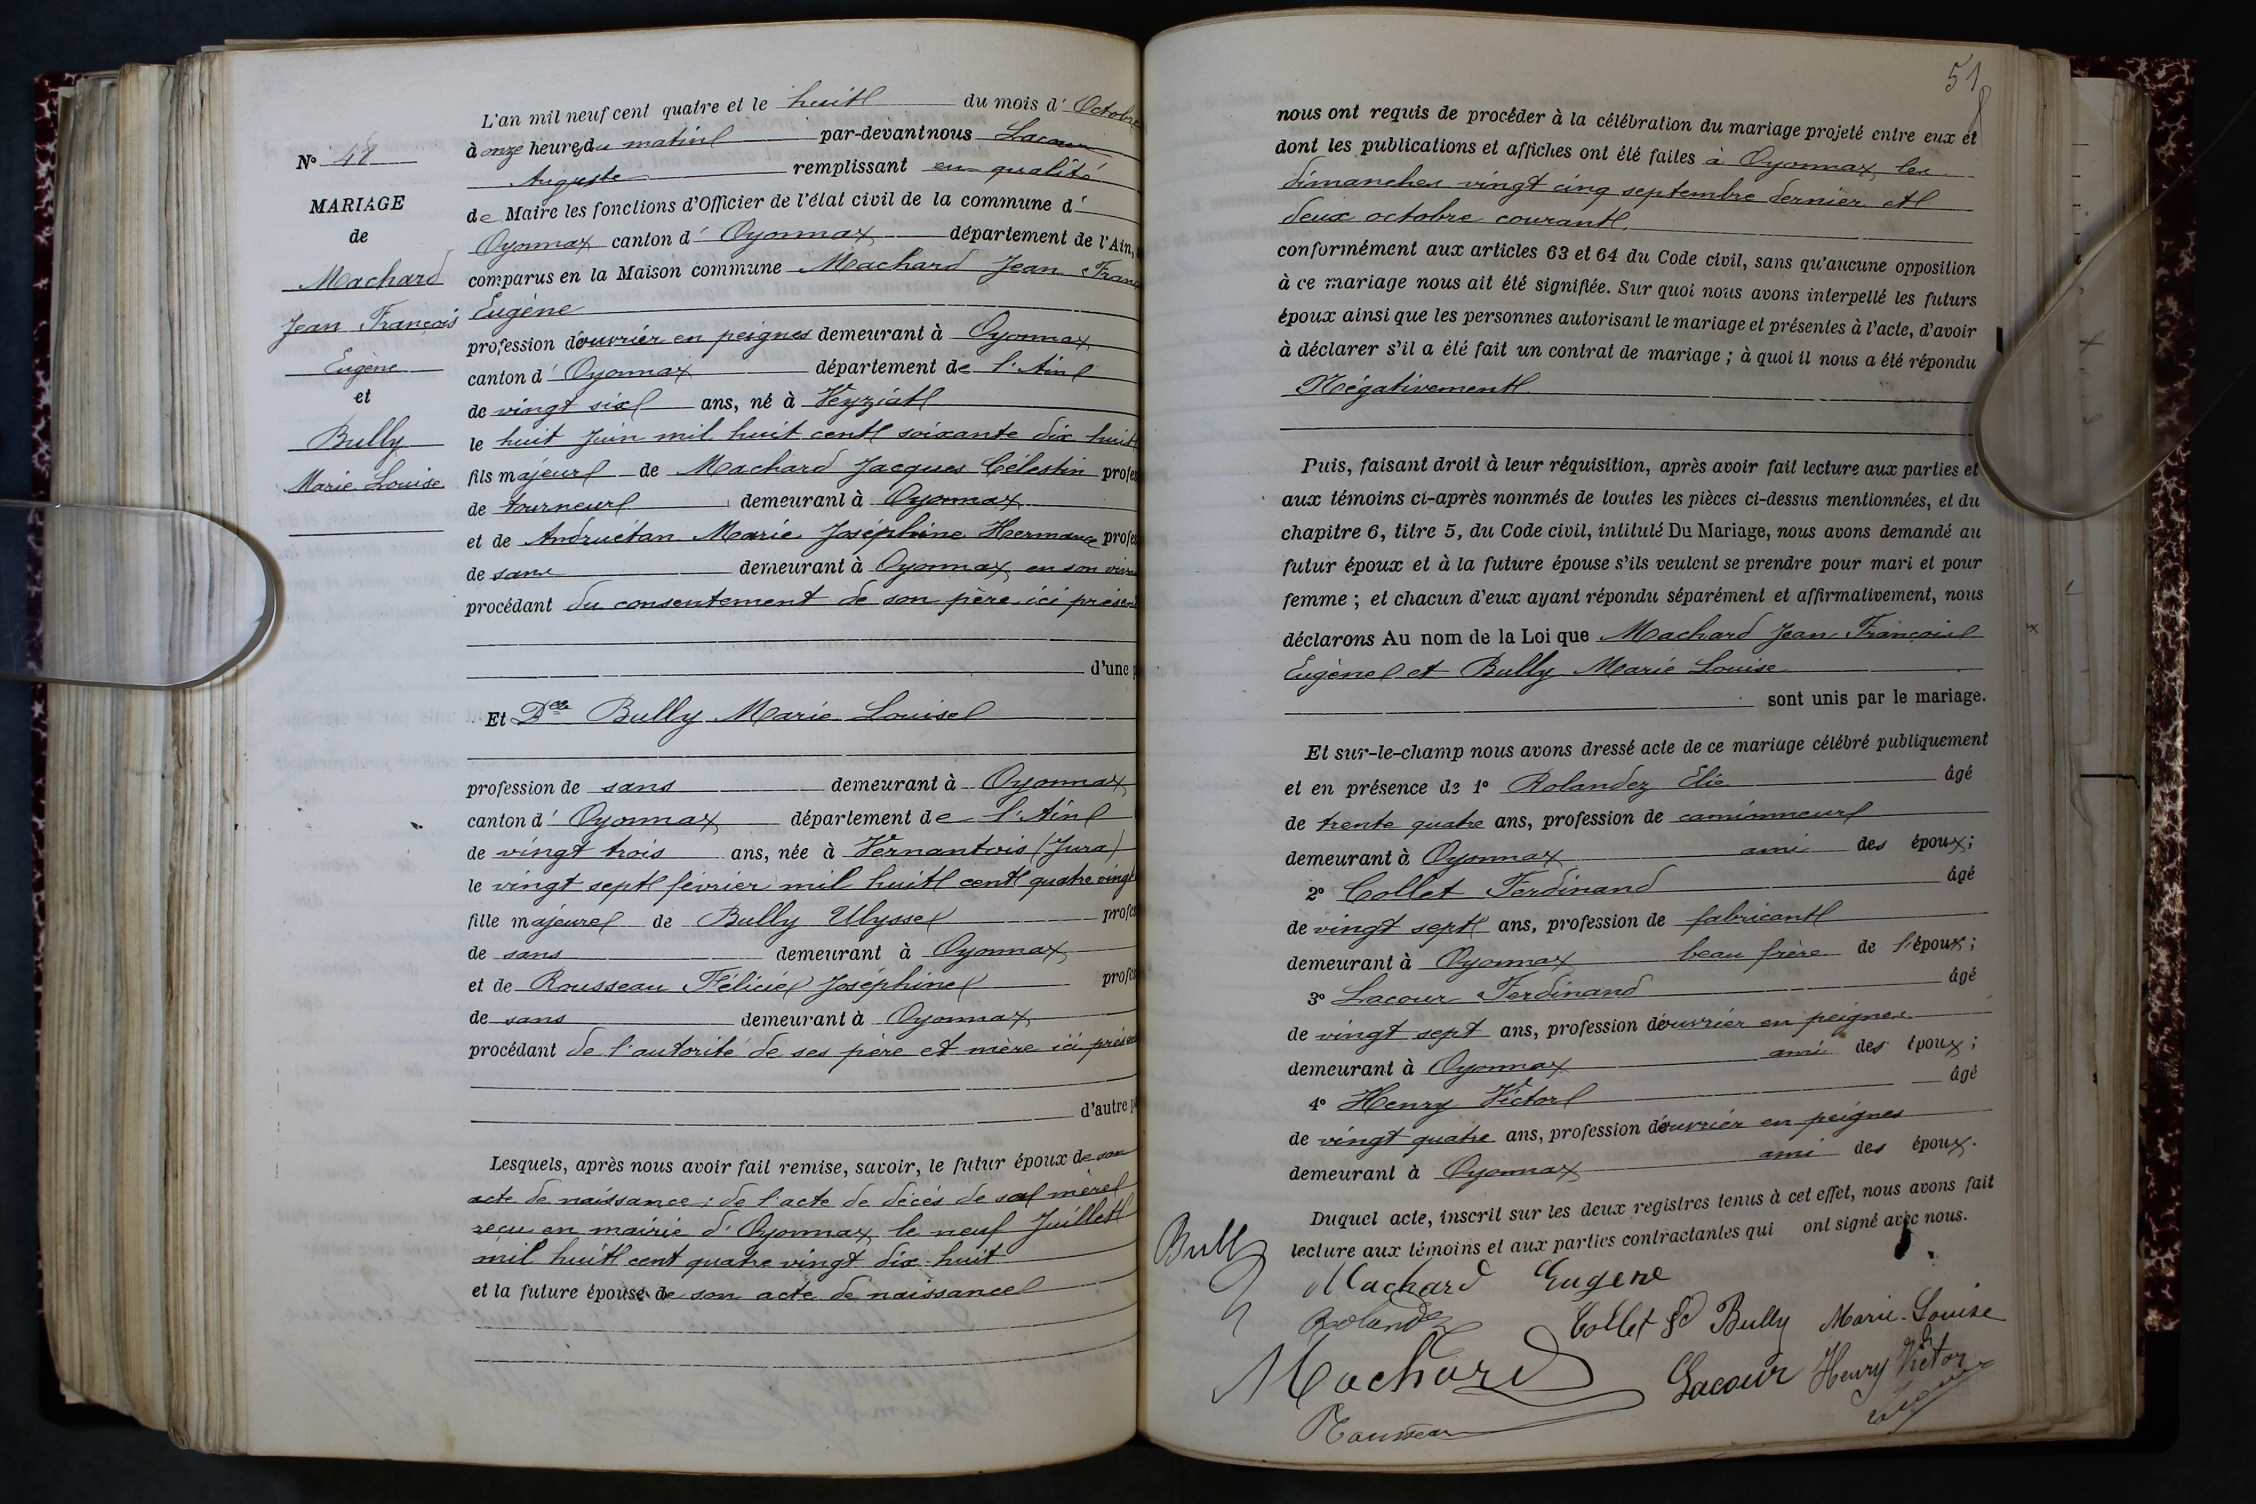 N° 48
MARIAGE
de
Machard
Jean François
Eugène
et
Bully
Marie Louise
L'an mil neuf cent quatre et le huit du mois d' Octobre
à onze heures du matin par-devant nous Lacour
Auguste remplissant en qualité
de Maire les fonctions d'Officier de l'état civil de la commune d'
Oyonnax canton d' Oyonnax département de l'Ain,
comparus en la Maison commune Machard Jean Franç
Eugène
profession d'ouvrier en peignes demeurant à Oyonnax
canton d' Oyonnax département de l'Ain
de vingt six ans, né à Veyziat
le huit Juin mil huit cent soixante dix huit
fils majeur de Machard Jacques Célestin profes
de tourneur demeurant à Oyonnax
et de Andruétan Marie Joséphine Hermance profes
de sans demeurant à Oyonnax en son viva
procédant du consentement de son père ici présen
d'une p
Et Delle Bully Marie Louise
profession de sans demeurant à Oyonnax
canton d' Oyonnax département de l'Ain
de vingt trois ans, née à Vernantois (Jura)
le vingt sept février mil huit cent quatre vingt
fille majeure de Bully Ulysse profes
de sans demeurant à Oyonnax
et de Rousseau Félicie Joséphine profes
de sans demeurant à Oyonnax
procédant de l'autorité de ses père et mère ici présen
d'autre pa
Lesquels, après nous avoir fait remise, savoir, le futur époux de son
acte de naissance; de l'acte de décès de sa mère
reçu en mairie d'Oyonnax le neuf Juillet
mil huit cent quatre vingt dix huit
et la future épouse de son acte de naissance
51
nous ont requis de procéder à la célébration du mariage projeté entre eux et
dont les publications et affiches ont été faites à Oyonnax les
dimanches vingt cinq septembre dernier et
deux octobre courant.
conformément aux articles 63 et 64 du Code civil, sans qu'aucune opposition
à ce mariage nous ait été signifiée. Sur quoi nous avons interpellé les futurs
époux ainsi que les personnes autorisant le mariage et présentes à l'acte, d'avoir
à déclarer s'il a été fait un contrat de mariage ; à quoi il nous a été répondu
Négativement
Puis, faisant droit à leur réquisition, après avoir fait lecture aux parties et
aux témoins ci-après nommés de toutes les pièces ci-dessus mentionnées, et du
chapitre 6, titre 5, du Code civil, intitulé Du Mariage, nous avons demandé au
futur époux et à la future épouse s'ils veulent se prendre pour mari et pour
femme ; et chacun d'eux ayant répondu séparément et affirmativement, nous
déclarons Au nom de la Loi que Machard Jean François
Eugène et Bully Marie Louise
sont unis par le mariage.
Et sur-le-champ nous avons dressé acte de ce mariage célébré publiquement
et en présence de 1° Rolandez Elie âgé
de trente quatre ans, profession de camionneur
demeurant à Oyonnax ami des époux;
2° Collet Ferdinand âgé
de vingt sept ans, profession de fabricant
demeurant à Oyonnax beau frère de l'époux;
3° Lacour Ferdinand âgé
de vingt sept ans, profession d'ouvrier en peignes
demeurant à Oyonnax ami des époux;
4° Henry Victor âgé
de vingt quatre ans, profession d'ouvrier en peignes
demeurant à Oyonnax ami des époux.
Duquel acte, inscrit sur les deux registres tenus à cet effet, nous avons fait
lecture aux témoins et aux parties contractantes qui ont signé avec nous.
Bully
Machard Eugène
Rolandez Collet Fd Bully Marie-Louise
Machard Lacour Henry Victor
Rousseau